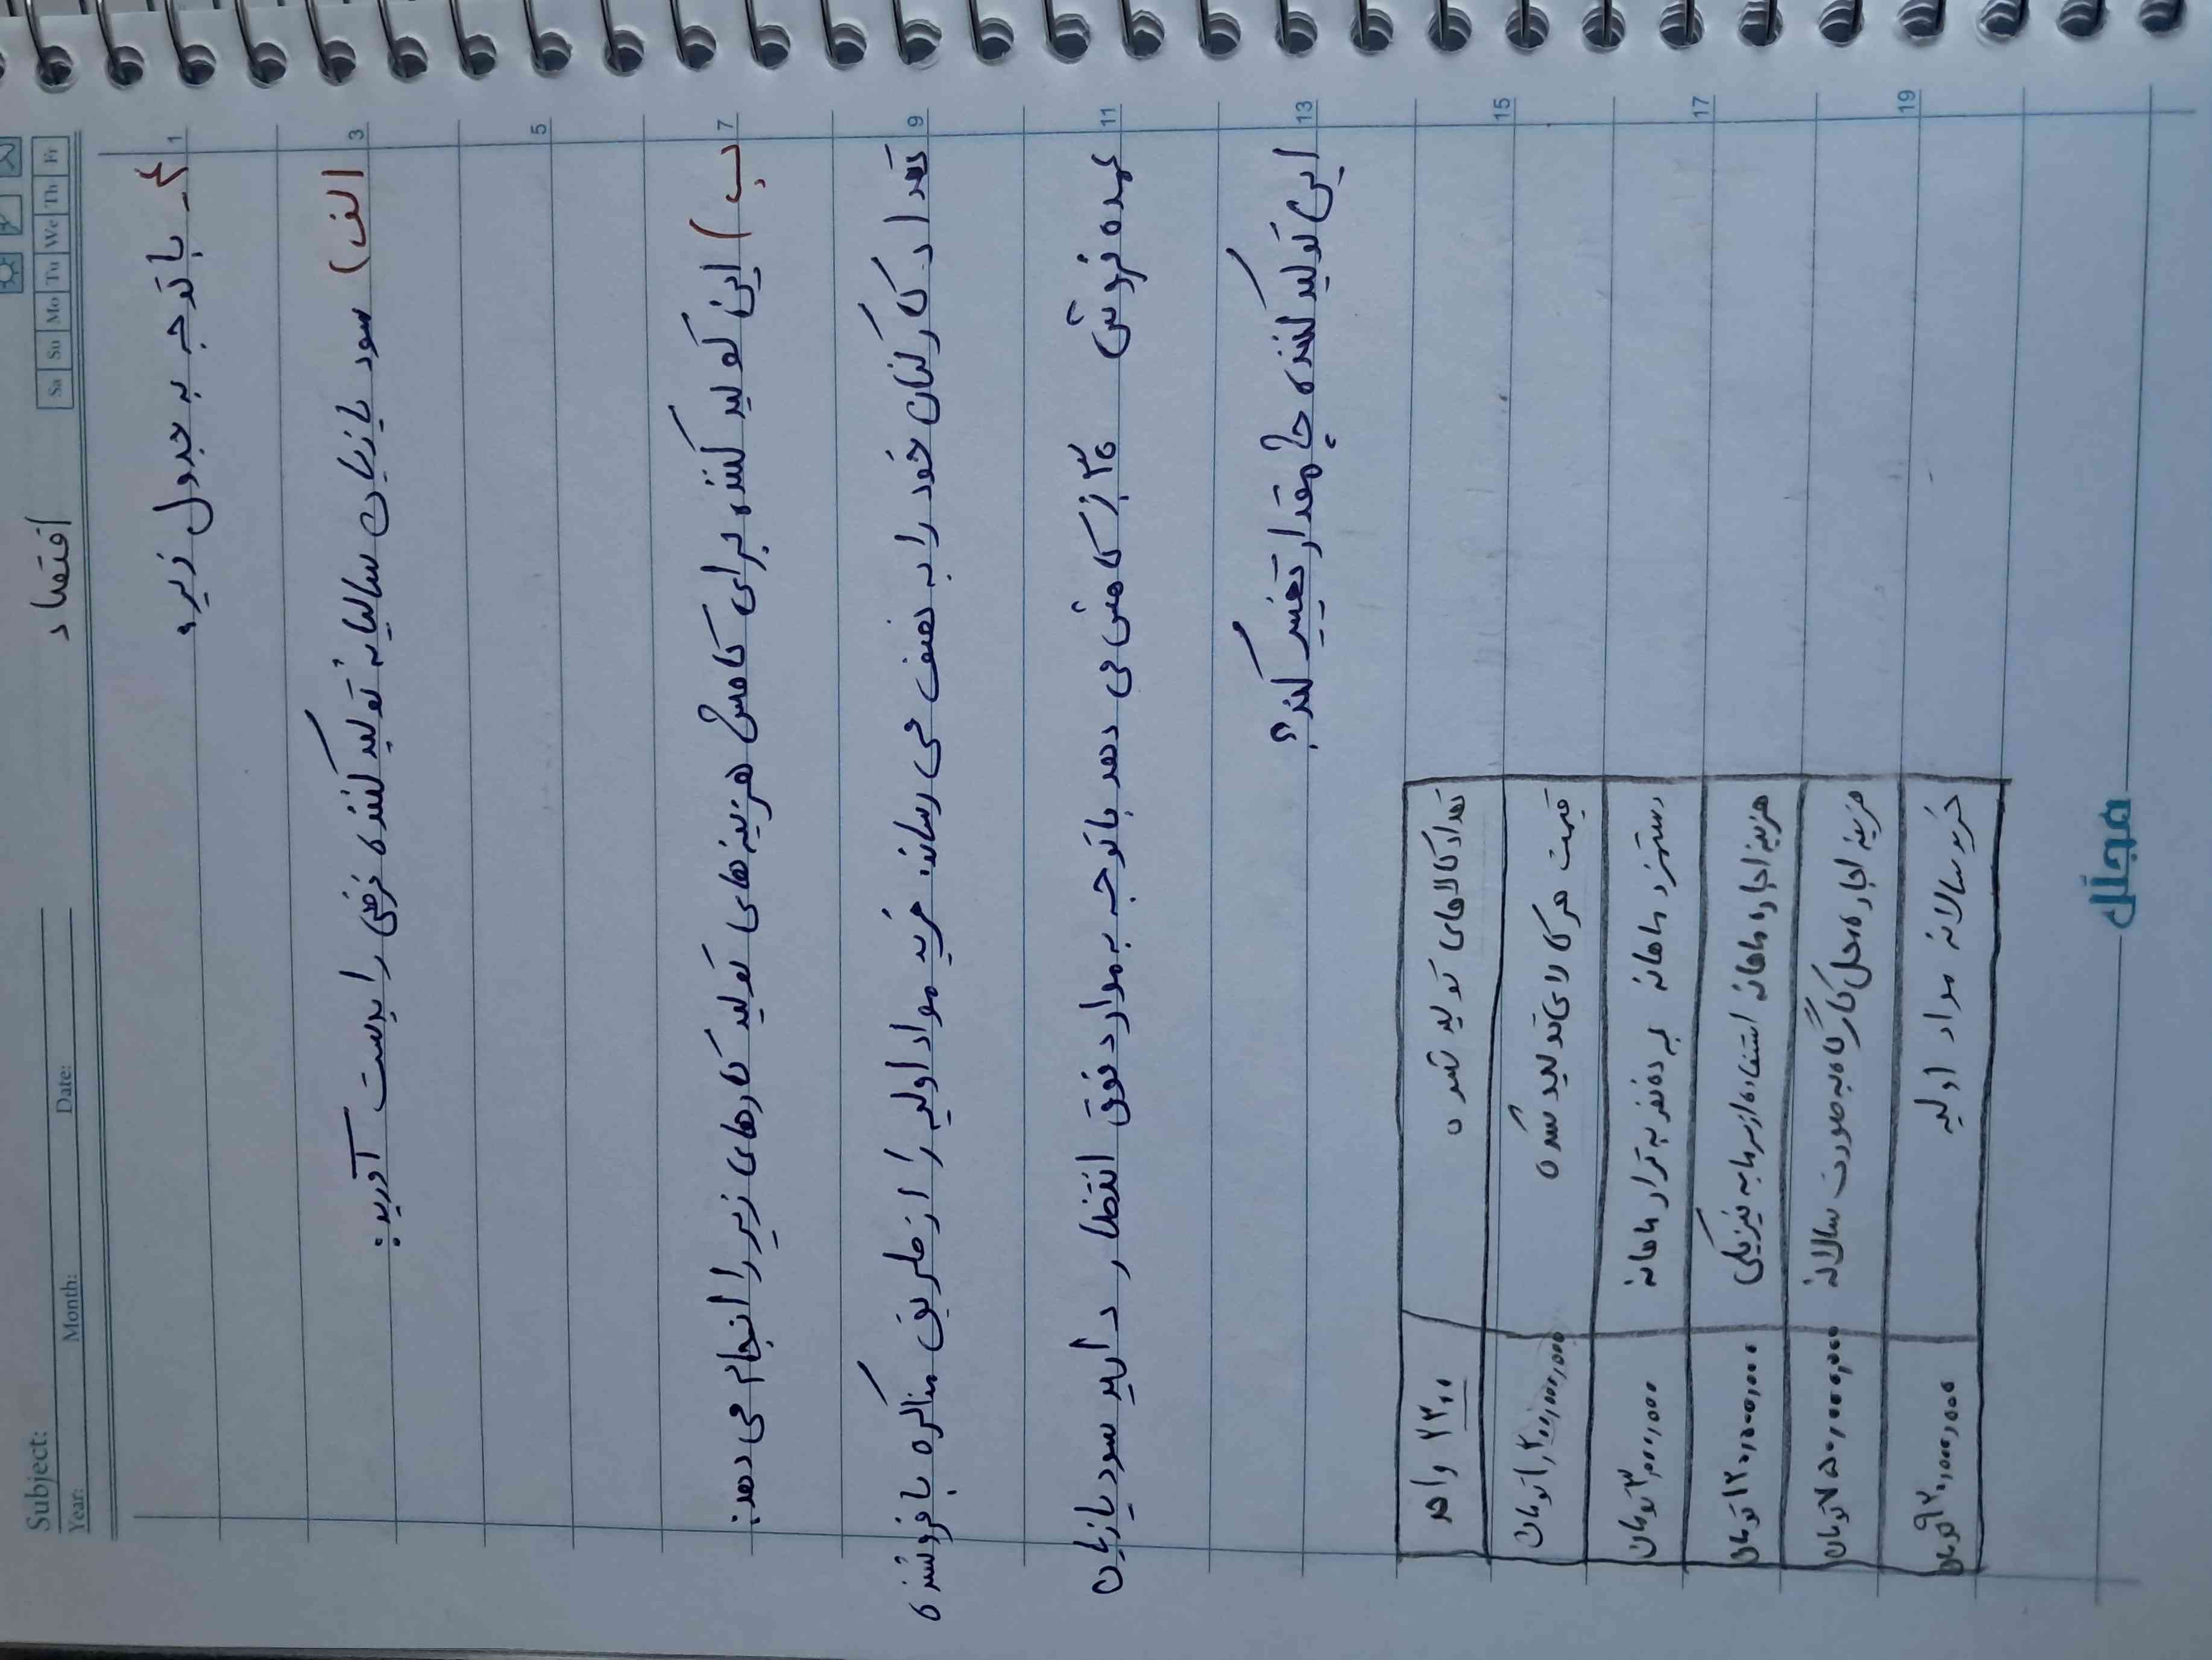 Subject:
Year: Month: Date:
اقتصاد
Sa Su Mo Tu We Th Fr
۴- باتوجه به جدول زیر:
الف) سود یا زیان سالیانه تولید کننده فرضی را بدست آورید:
ب) این تولید کننده برای کاهش هزینه های تولید کارهای زیر را انجام می دهد:
تعداد کارکنان خود را به نصف می رساند. خرید مواد اولیه را از طریق مذاکره با فروشنده
عمده فروش ۳۰٪ کاهش می دهد باتوجه به موارد فوق انتظار دارید سود یا زیان
این تولید کننده چه مقدار تغییر کند؟
تعداد کالاهای تولید شده ۲۳۰۰ واحد
قیمت هر کالای تولید شده تومان
دستمزد ماهانه به ده نفر به قرار ماهانه ۳,۰۰۰,۰۰۰ تومان
هزینه اجاره ماهانه استفاده از سرمایه فیزیکی ۱۲۰,۰۰۰,۰۰۰ تومان
هزینه اجاره محل کارگاه به صورت سالانه ۷۵۰,۰۰۰,۰۰۰ تومان
خرید سالانه مواد اولیه ۹۲۰,۰۰۰,۰۰۰ تومان
1
3
5
7
9
11
13
15
17
19
مجلّل